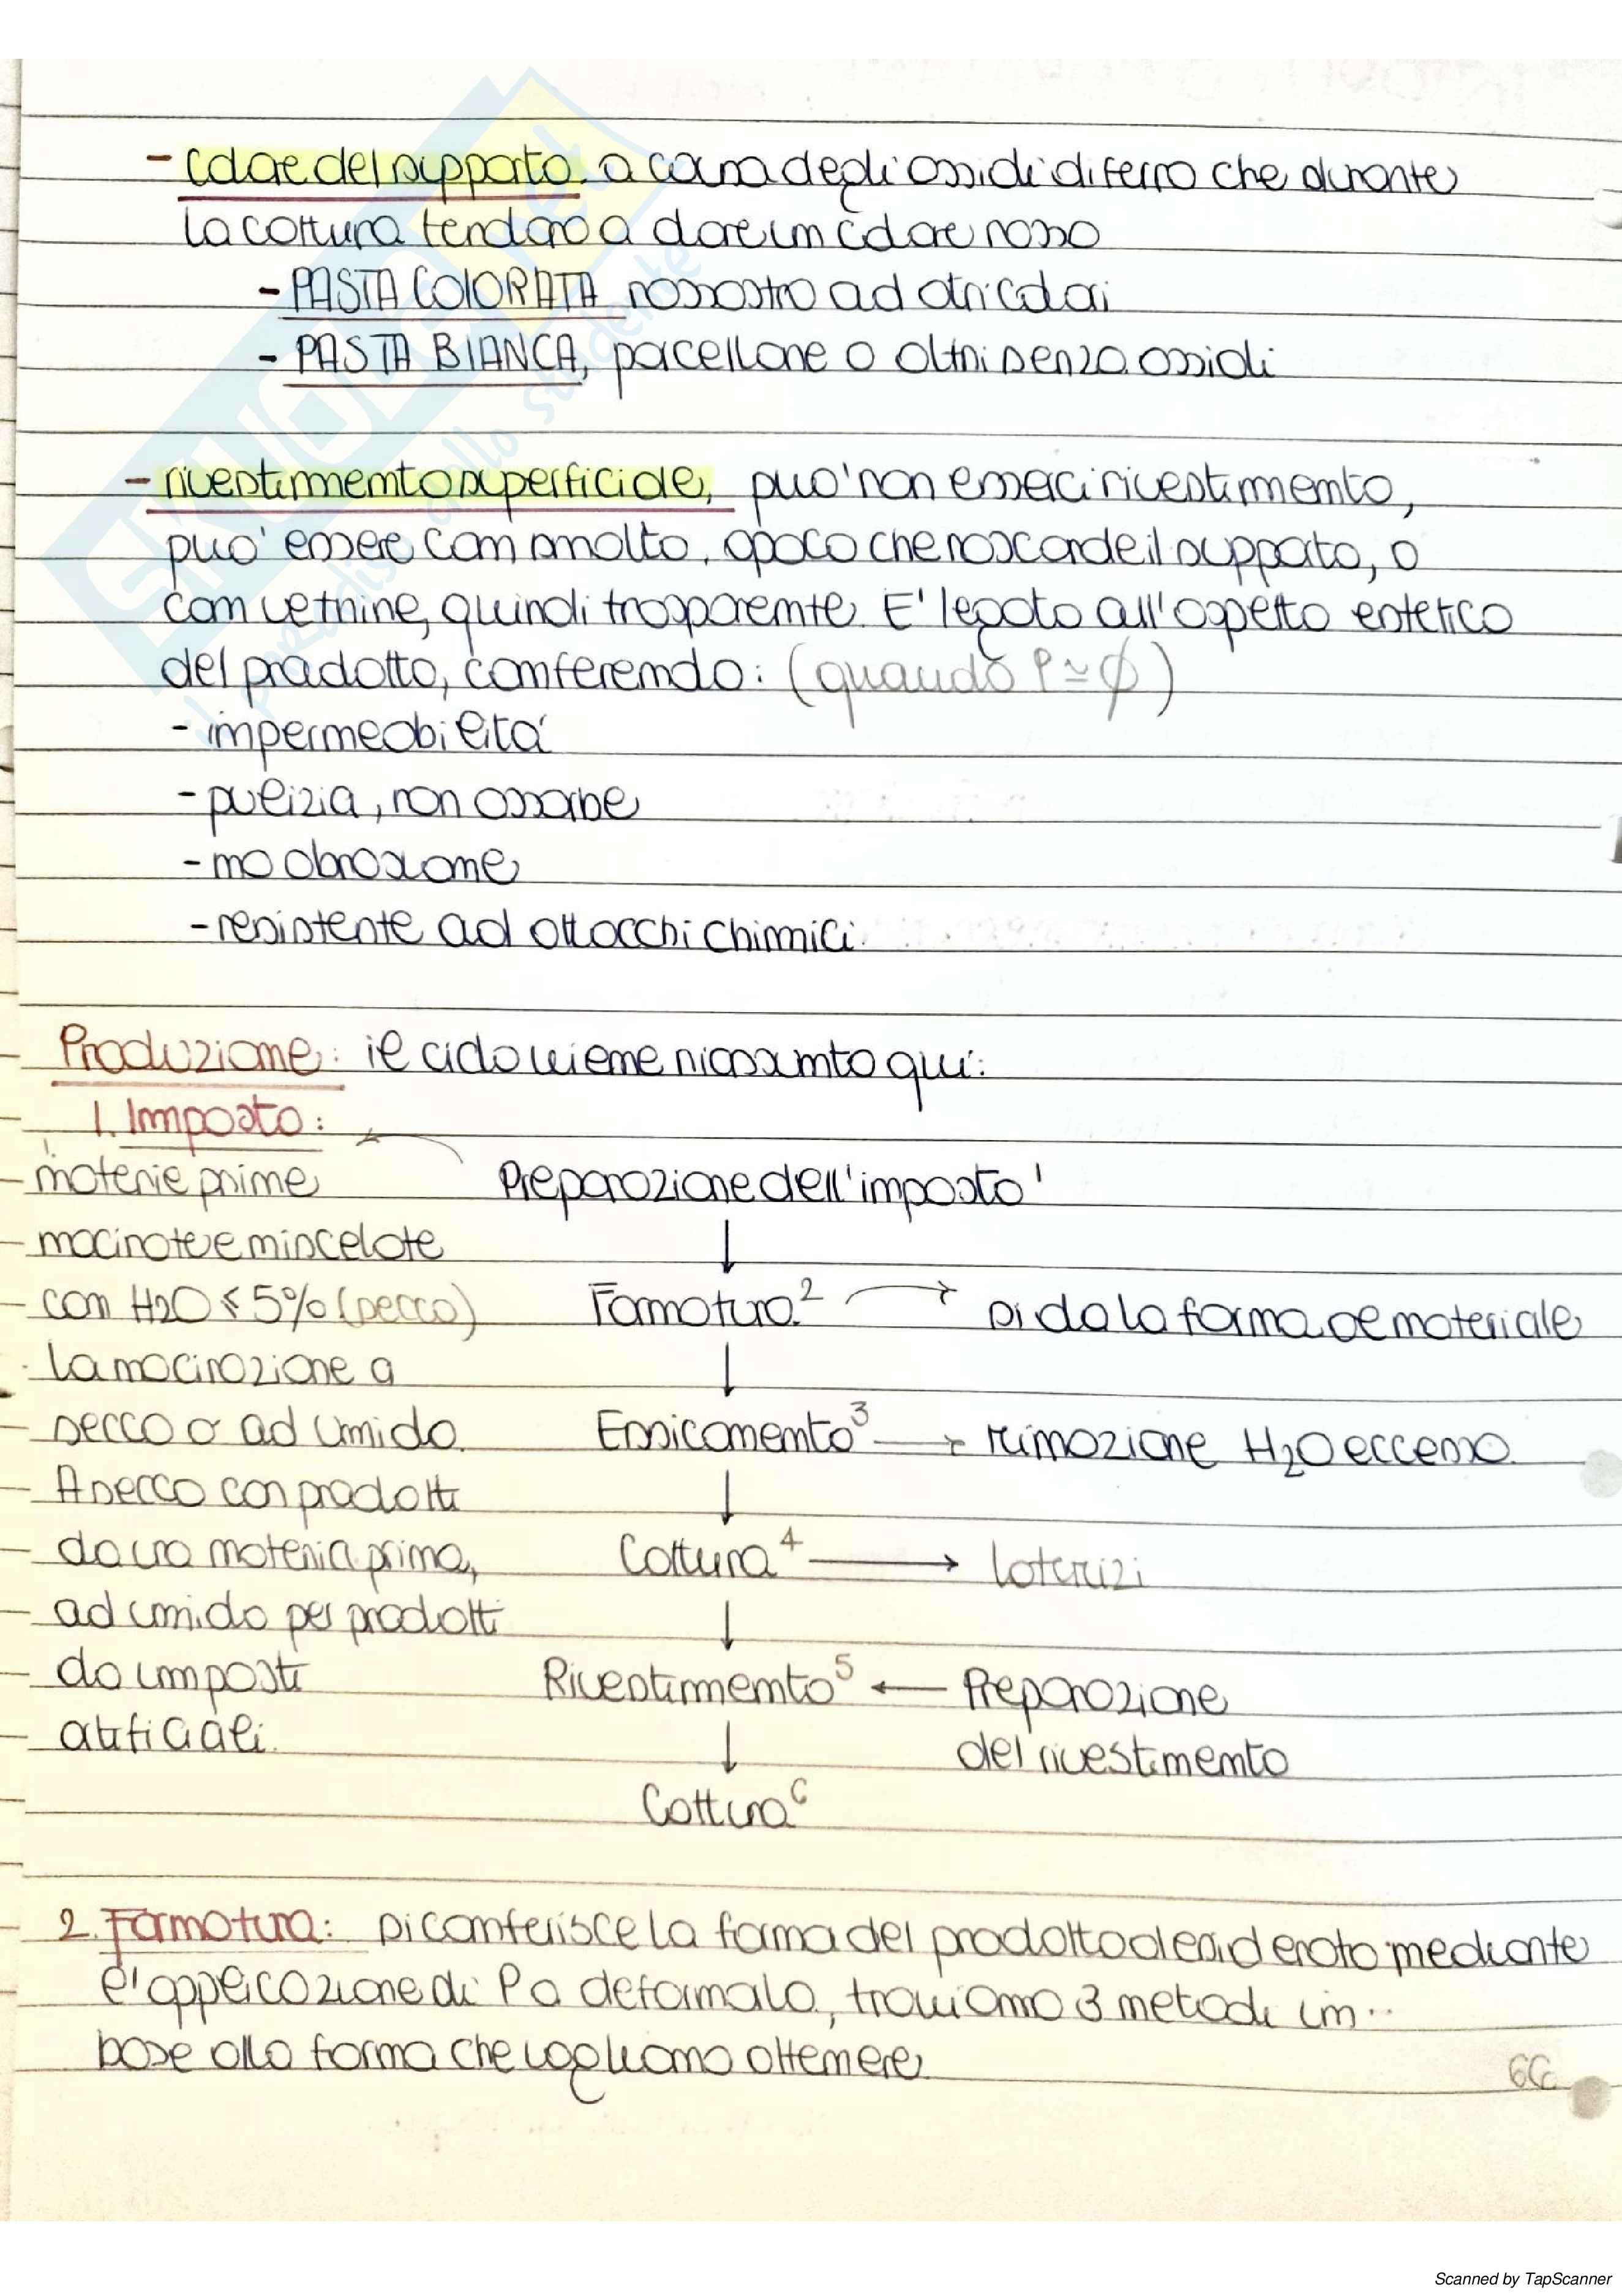 - colore del supporto, a causa degli ossidi di ferro che durante
la cottura tendono a dare un colore rosso
- PASTA COLORATA rossastro ad altri colori
- PASTA BIANCA, porcellane o altri senza ossidi
- rivestimento superficiale, puo' non esserci rivestimento,
puo' essere con smalto, opaco che nasconde il supporto, o
con vetrine, quindi trasparente. E' legato all'aspetto estetico
del prodotto, conferendo: (quando P ≃ ϕ)
- impermeabilità
- pulizia, non assorbe
- no abrasione
- resistente ad attacchi chimici.
Produzione: il ciclo viene riassunto qui:
1. Impasto:
materie prime
macinate e miscelate
con H2O ≤ 5% (secco)
la macinazione a
secco o ad umido.
A secco con prodotti
da una materia prima,
ad umido per prodotti
da impasti
artificiali.
Preparazione dell'impasto 1
↓
Formatura 2 → si da la forma al materiale
↓
Essicamento 3 → rimozione H2O eccesso
↓
Cottura 4 → laterizi
↓
Rivestimento 5 ← Preparazione
del rivestimento
↓
Cottura 6
2. Formatura: si conferisce la forma del prodotto desiderato mediante
l'applicazione di P a deformalo, troviamo 3 metodi in
base alla forma che vogliamo ottenere
SKUOLA.net
il paradiso dello studente
Scanned by TapScanner